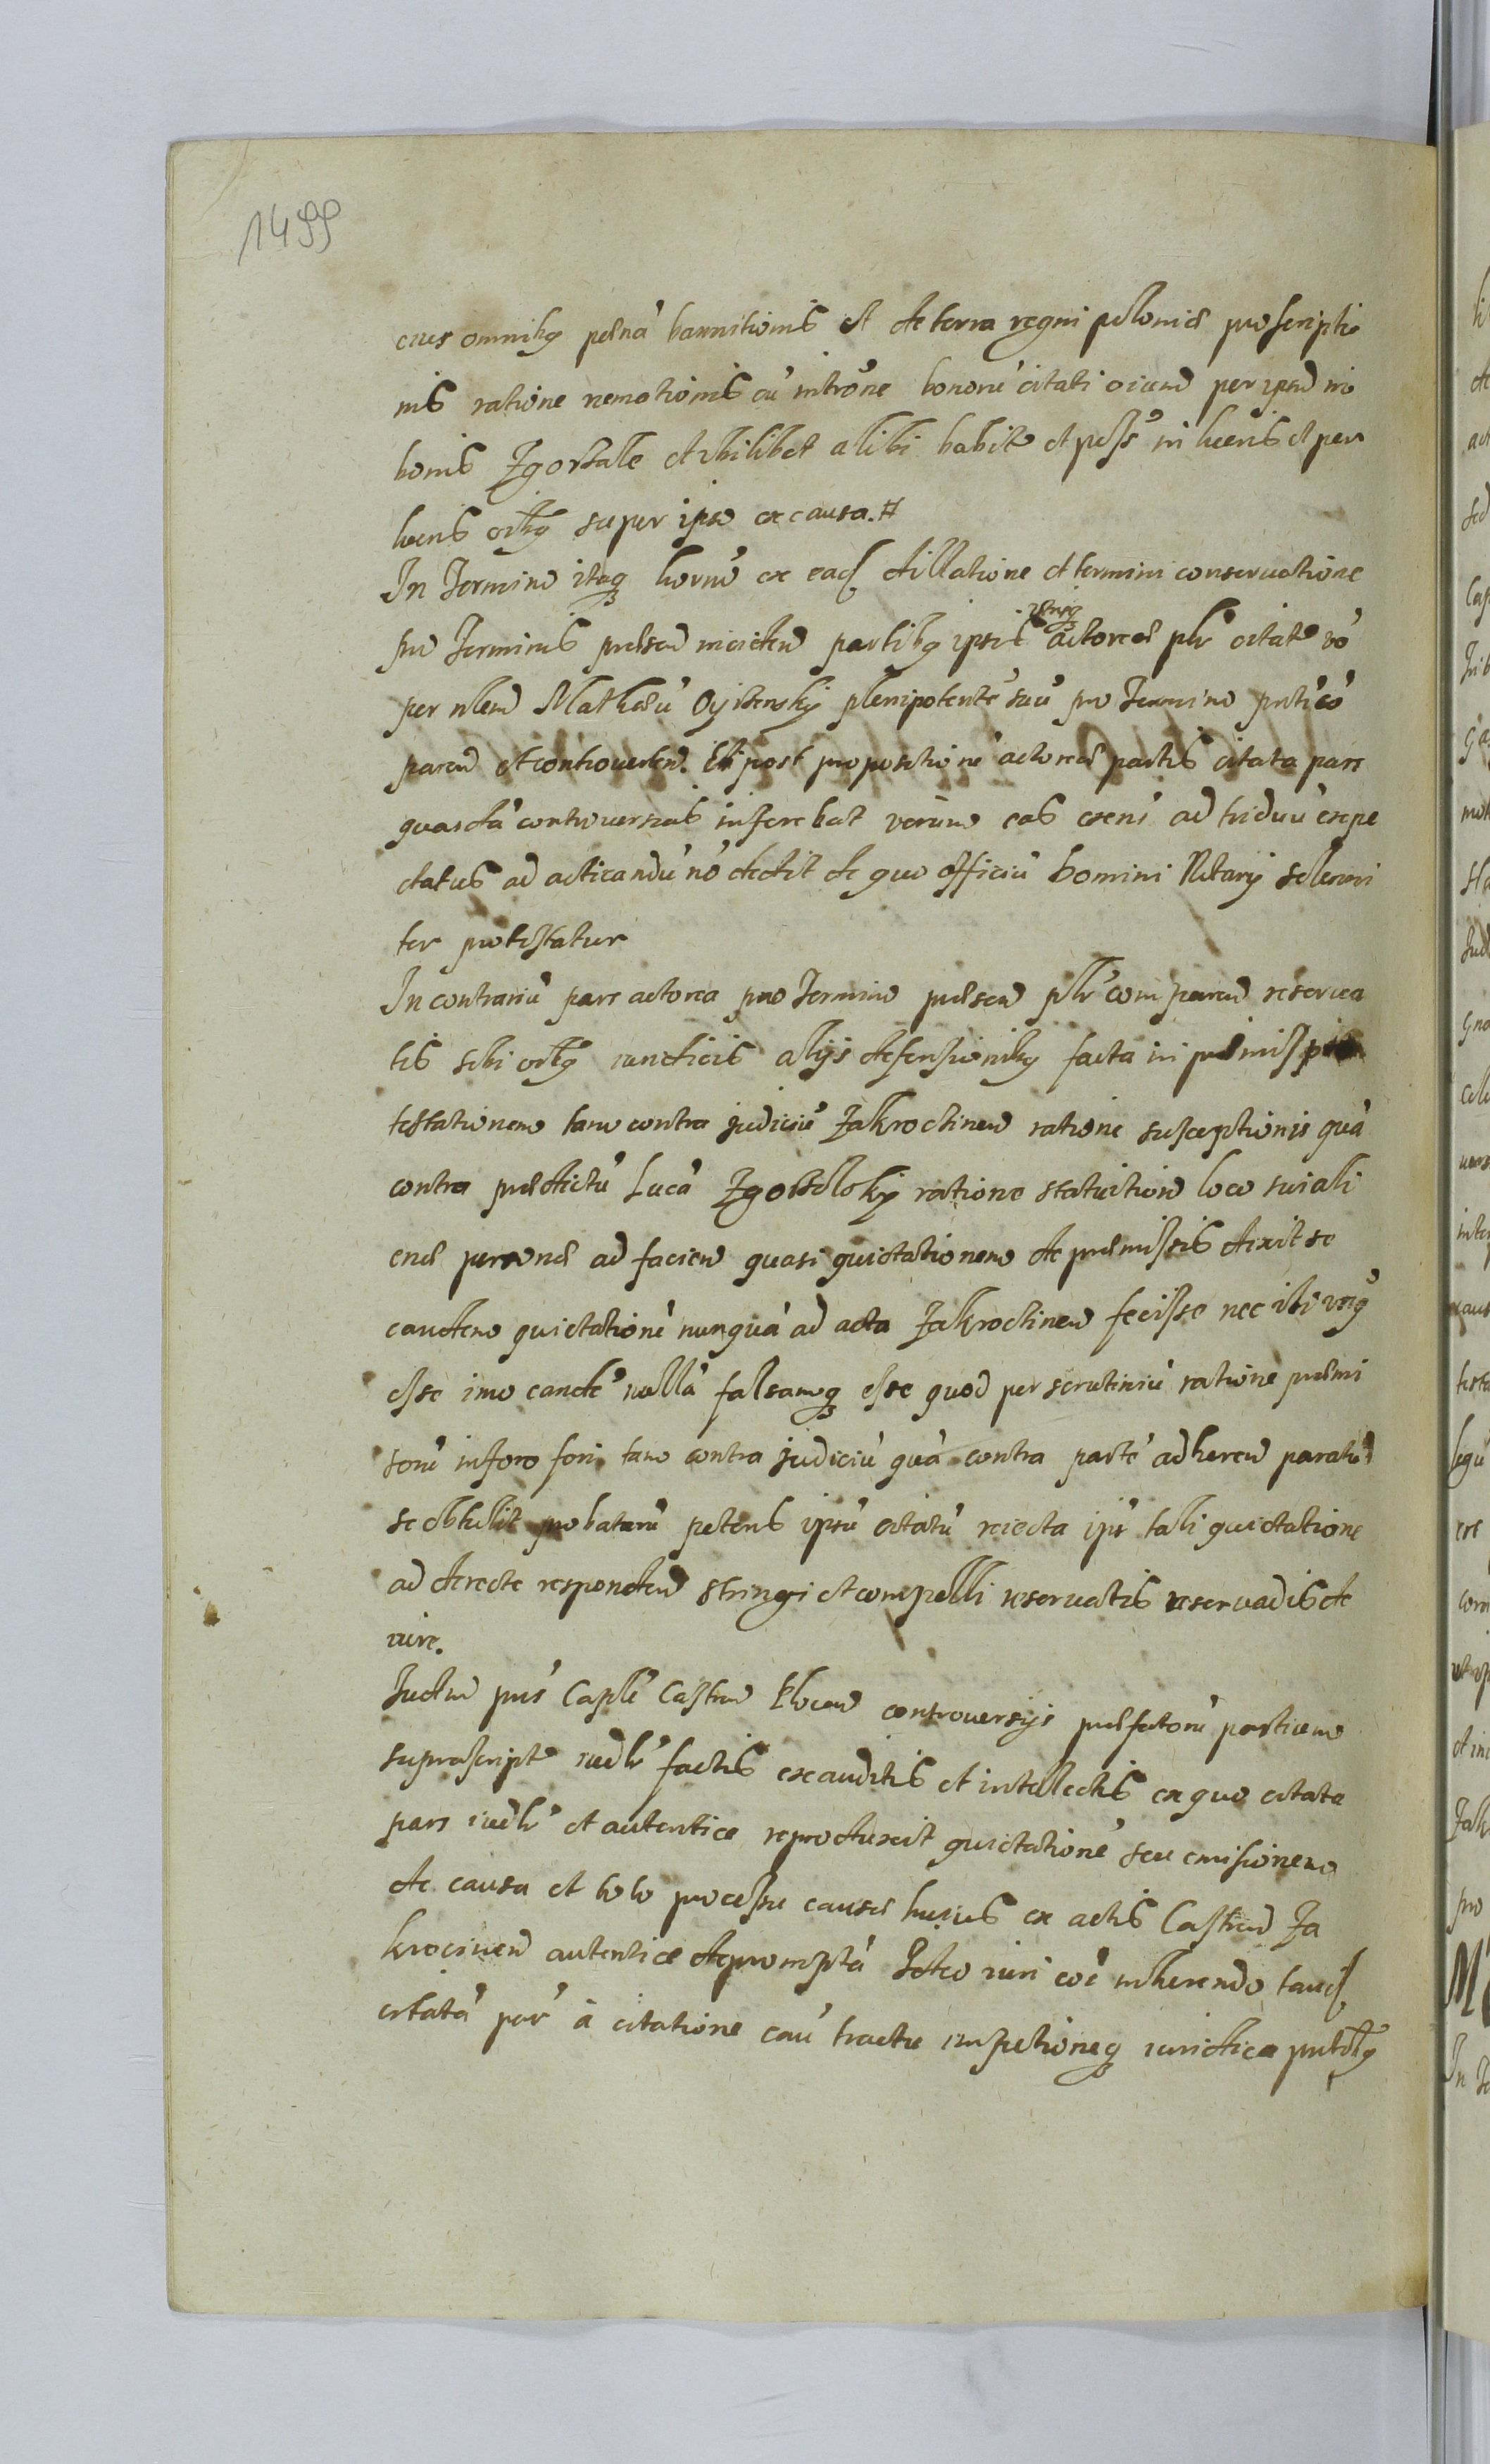 1499
cues omnibq pęna' bannitionis et de terra regni polonię proscriptio
nis ratione remotionis cu' intro'ne bonoru' citati oium per ipsum in
bonis Zgorzale et ubilibet alibi habitis et poss' in lucris et per
lucris oibq super ipso ex causa.#
In Termino itaq horu' ex ead dillatione et termini conservatione
pro Terminis pręsen incidem partibq ipsis actoreę plr' citato vo'
utrisq
per nlem Mathęu' Oyrzensky plenipotente' suu' pro Termino pnti co'
paren et controverten. Et post propositione' actoreę partis citata pars
quasda' controversias inferebat verum eas eseni' ad triduu' expe
ctatus ad acticandu' no' dedit de quo officiu' Domini Notarii solenni
ter protestatur
In contrariu' pars actorea pro Termino pręsen plr' comparen reserva
tis sibi oibq iuridicis alijs defensionibq facta in pręmiss
testationem tam contra judiciu' Zakroctinen ratione susceptionis qua'
contra prędictu' Luca' Zgorzelsky ratione statuition loco sui ali
enę personę ad facien quasi quictationem de pręmissis dixit se
eandem quictatione' nunqua' ad acta Zakroctinen fecisse nec ibi unq'
esse imo eande' nulla' falsamq esse quod per scrutiniu' ratione pręmi
soru' in foro fori tam contra judiciu' qua' contra parte' adheren paratu'
se obtulit probaturu' petens ipsu' citatu' reiecta ips' tali quictatione
ad derecte responden stringi et compelli reservatis reservadis de
iure.
Iudiu' pns' Caple' Castren Plocen controversijs pręfatoru' partium
suprascripto iudlr' factis exauditis et intellectis ex quo citata
pars iudlr' et autentice reproduxit quictatione' seu emisionem
de causa et toto processu causę huius ex actis Castren Za
krocinen autentice deprompta' Ideo iuri coi' inherendo tand
citata' par' à citatione cau' tractu impetitioneq iuridica pntibq